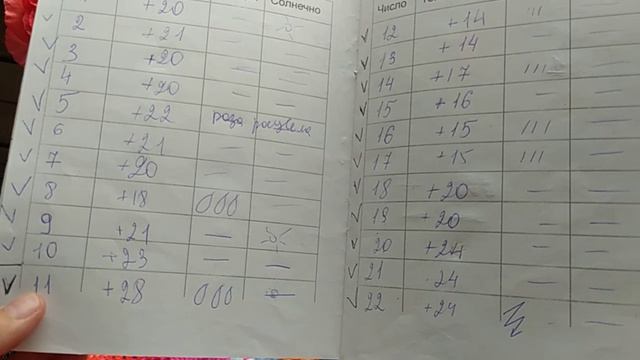 Солнечно
+20
2 +21 —
3 +20 — —
4 +20 — —
5 +22 роза расцвела
6 +21 — —
7 +20 — —
8 +18 —
9 +21 —
10 +23 — —
11 +28 —
Число
12 +14 ''' —
13 +14 — —
14 +17 ''' —
15 +16 — —
16 +15 ''' —
17 +15 ''' —
18 +20 — —
19 +20 — —
20 +24 — —
21 24 — —
22 +24 —